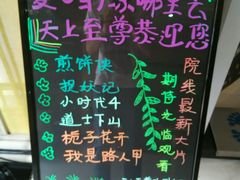 天上至尊恭迎您
煎饼侠
捉妖记
小时代4
道士下山
栀子花开
我是路人甲
院线最新大片
期待光临观看